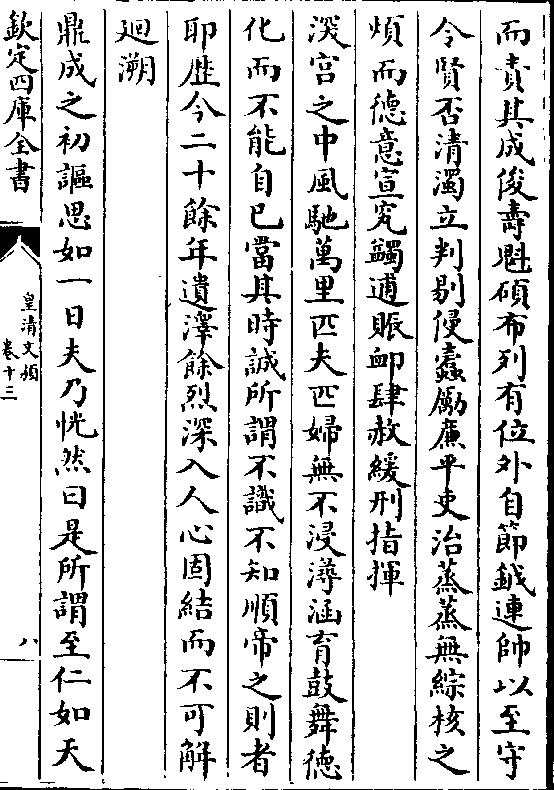 而責其成俊壽魁碩布列有位外自節鉞連帥以至守
令賢否清濁立判剔侵蠹勵廉平吏治蒸蒸無綜核之
煩而德意宣究蠲逋賑卹肆赦緩刑指揮
深宫之中風馳萬里匹夫匹婦無不浸潯涵育鼓舞德
化而不能自已當其時誠所謂不識不知順帝之則者
耶歴今二十餘年遺澤餘烈深入人心固結而不可解
廻溯
鼎成之初謳思如一日夫乃恍然曰是所謂至仁如天
欽定四庫全書
皇清文頴
卷十三
八